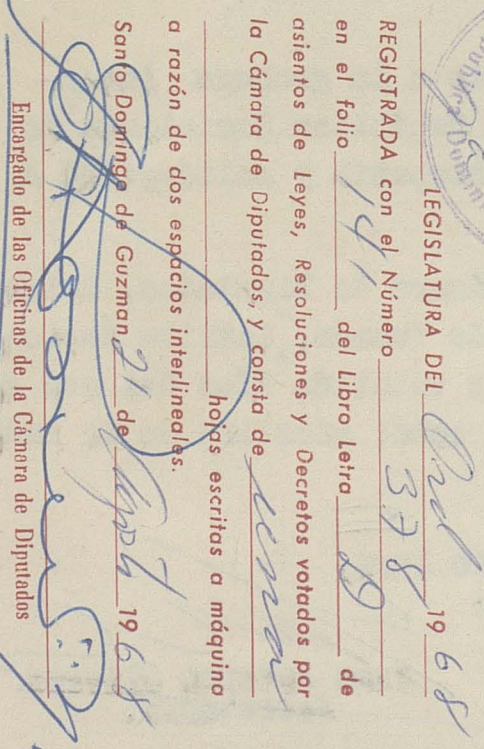 LEGISLATURA DEL Ord 1968
REGISTRADA con el Número 378
en el folio 141 del Libro Letra D de
asientos de Leyes, Resoluciones y Decretos votados por
la Cámara de Diputados, y consta de una
hojas escritas a máquina
a razón de dos espacios interlineales.
Santo Domingo de Guzman 21 de Agost 1968
Encargado de las Oficinas de la Cámara de Diputados